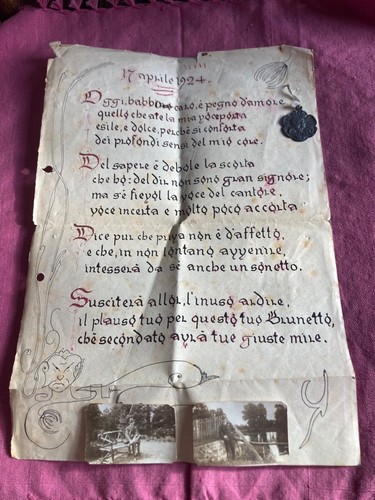 17 aprile 1924.
Oggi, babbino caro, è pegno d'amore
quello che a te la mia voce porta
esile, e dolce, perchè si conforta
dei profondi sensi del mio core.
Del sapere è debole la scorta
che ho: del dir non sono gran signore;
ma s'è fievol la voce del cantore,
voce incerta e molto poco accorta
Dice pur che priva non è d'affetto,
e che, in non lontano avvenire,
intesserà da sè anche un sonetto.
Susciterà allor, l'inuso ardire,
il plauso tuo per questo tuo Brunetto,
chè secondato avrà tue giuste mire.